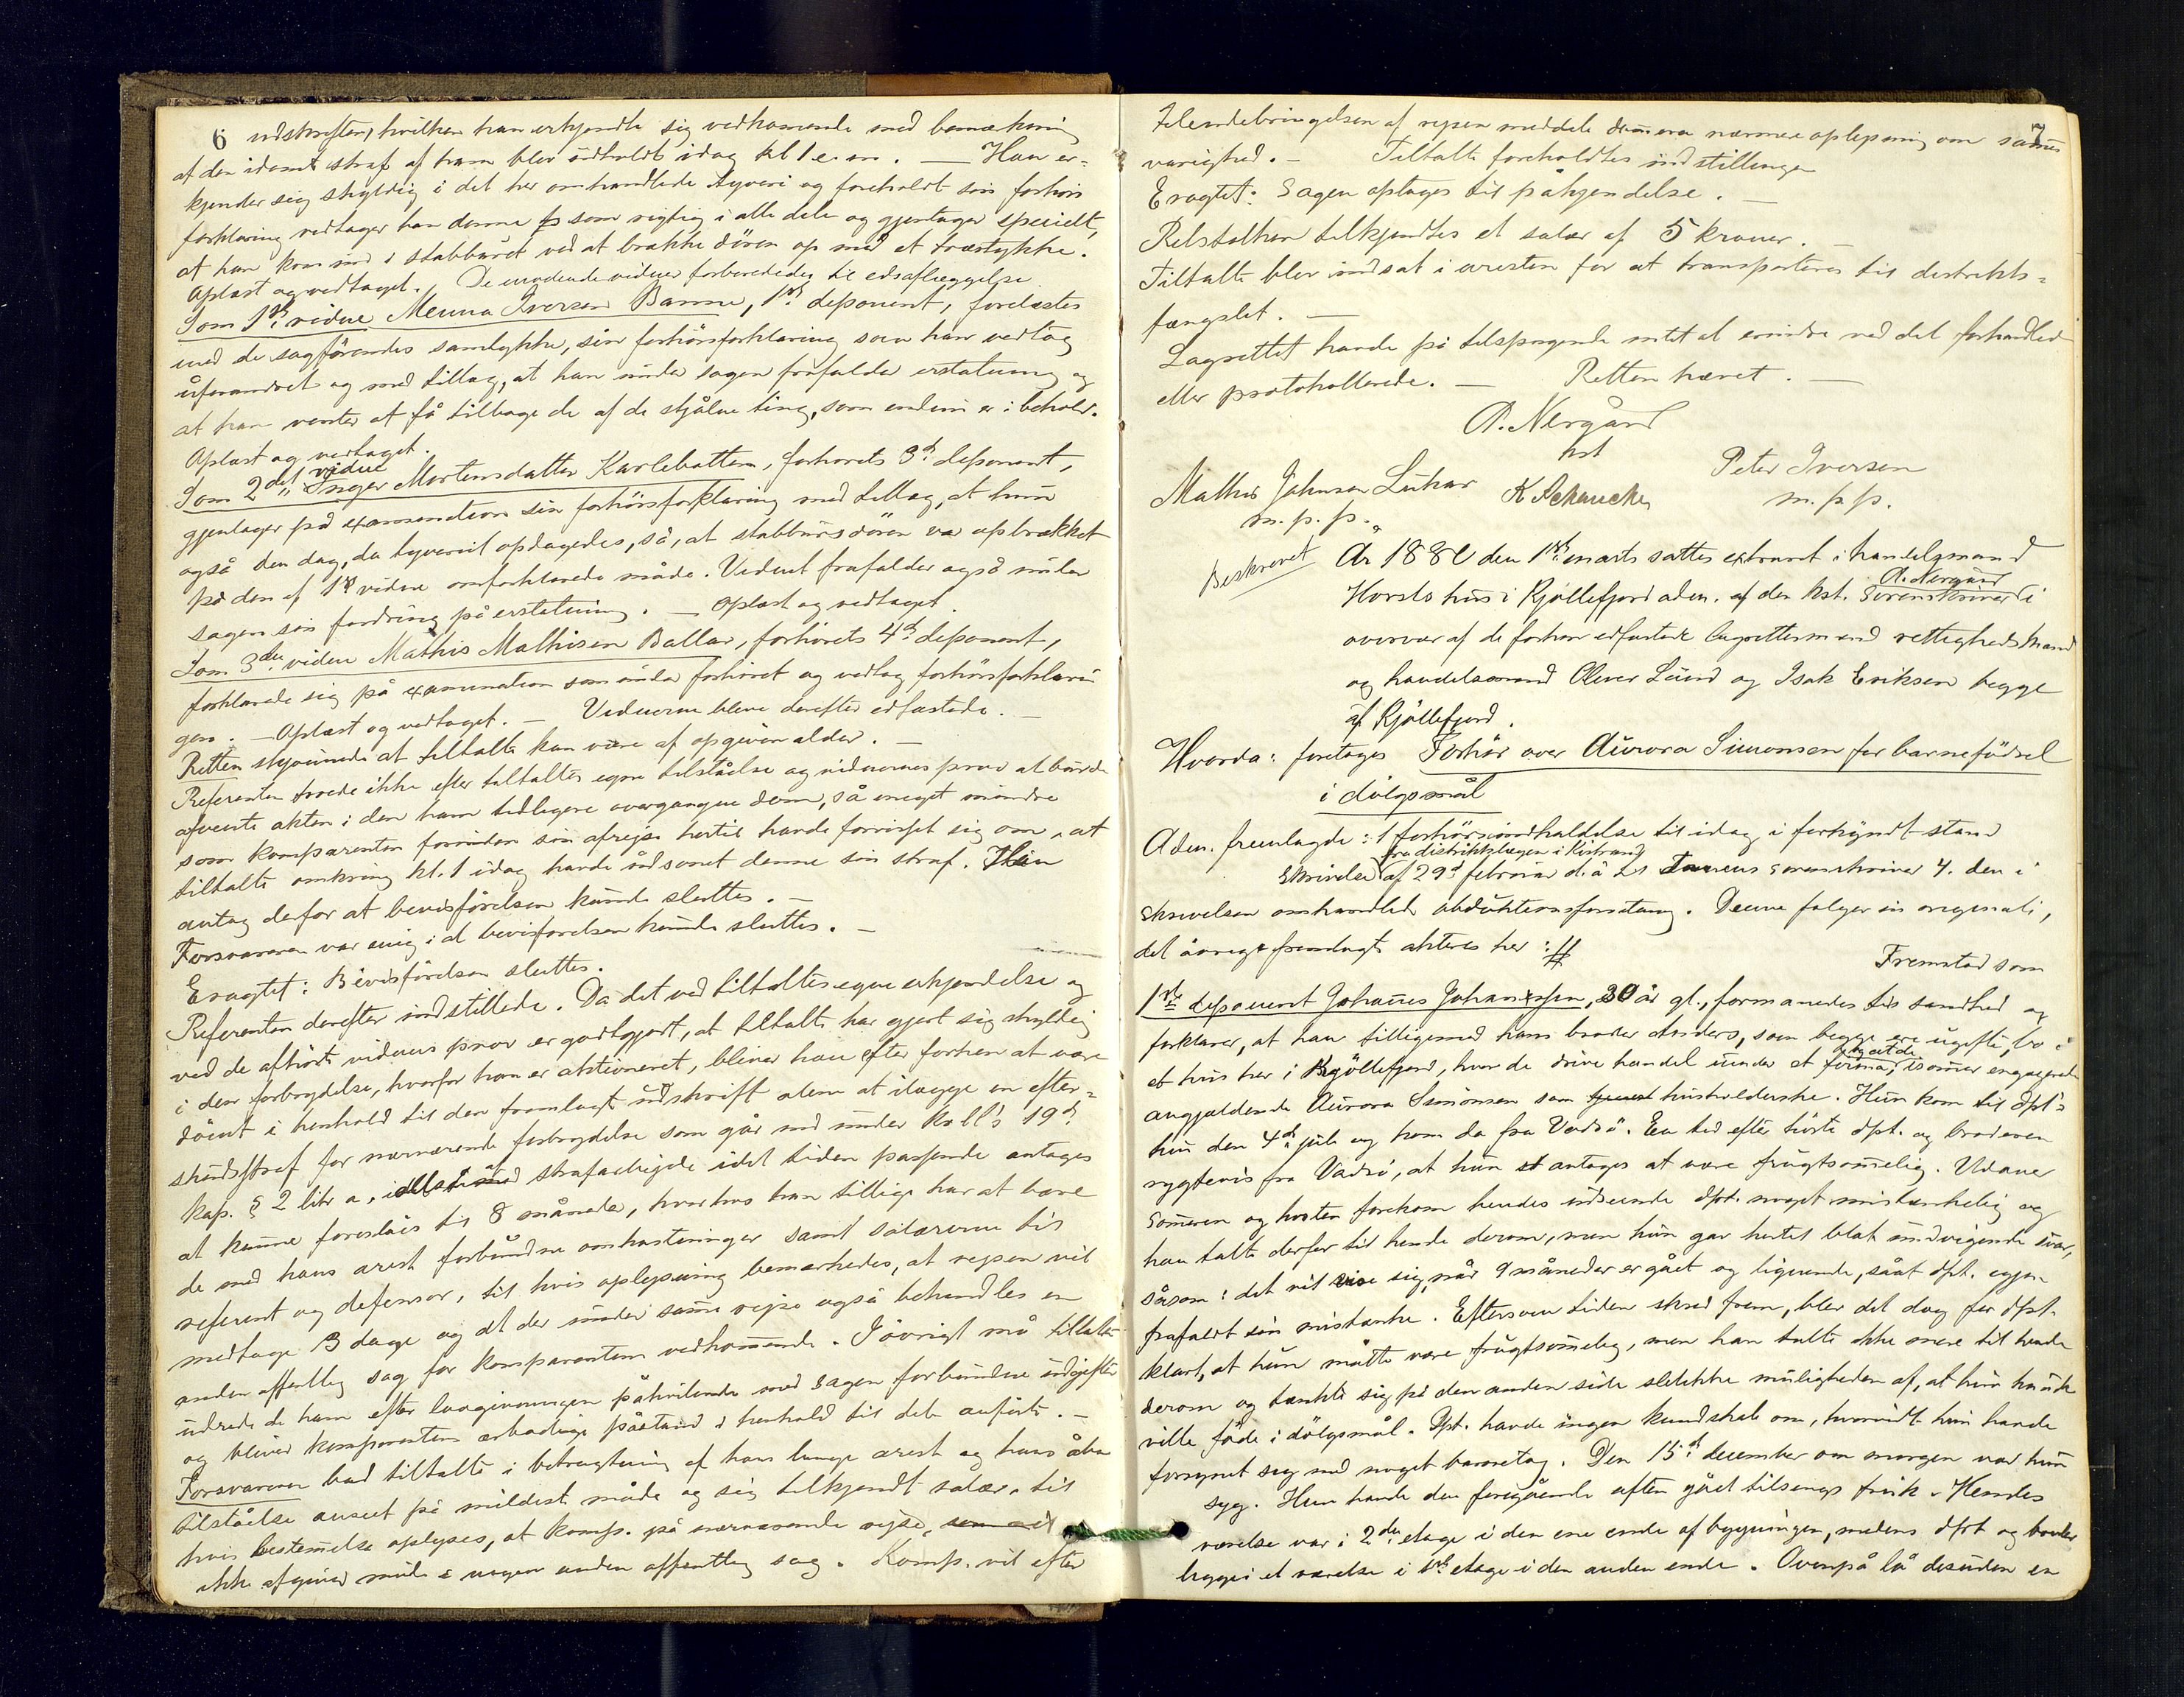 6 udskriften, hvilken han erkjendte sig vedkommende med bemærkning
at den idømte straf af ham blev udholdt idag kl 1 e. m. — Han er-
kjender sig skyldig i det her omhandlede tyveri og foreholdt sin forhörs
forklaring vedtager han denne som rigtig i alle dele og gjentager specielt,
at han kom ind i stabburet ved at brække dören op med et træstykke.
Oplæst og vedtaget. De mödende vidner forberededes til edsaflæggelse
Som 1ste vidne Menna Iversen Banne, 1ste deponent, forelæstes
med de sagförendes samtykke, sin forhörsforklaring som han vedtog
uforandret og med tillæg, at han under sagen frafalder erstatning og
at han venter at få tilbage de af de stjålne ting, som endnu er i behold.
Oplæst og vedtaget.
Som 2det vidne Inger Mortensdatter Karlebotten, forhörets 3d deponent,
gjentager på examination sin forhörsforklaring med tillæg, at hun
også den dag, da tyveriet opdagedes, så, at stabbursdören var opbrækket
på den af 1ste vidne omforklarede måde. Vidnet frafalder også under
sagen sin fordring på erstatning. — Oplæst og vedtaget.
Som 3die vidne Mathis Mathisen Ballar, forhörets 4d deponent,
forklarede sig på examination som under forhöret og vedtog forhörsforklarin
gen. — Oplæst og vedtaget. — Vidnerne bleve derefter edfæstede. —
Retten skjönnede at tiltalte kan være af opgiven alder. —
Referenten troede ikke efter tiltaltes egen tilståelse og vidnernes prov at burde
afvente akten i den ham tidligere overgangne dom, så meget mindre
som komparenten forinden sin afreise hertil havde forvisset sig om, at
tiltalte omkring kl. 1 idag havde udsonet denne sin straf. Han
antog derfor at bevisförelsen kunde sluttes. —
Forsvareren var enig i at bevisförelsen kunde sluttes. —
Eragtet: Bevisförelsen sluttes.
Referenten derefter indstillede. Da det ved tiltaltes egen erkjendelse og
ved de afhörte vidners prov er godtgjort, at tiltalte har gjort sig skyldig
i den forbrydelse, hvorfor han er aktioneret, bliver han efter forhen at være
dömt i henhold til den fremlagte udskrift alene at ilægge en efter-
skudsstraf for nærværende forbrydelse som går ind under kr.ll's 19d
kap. § 2 litr a, strafarbejde idet tiden passende antages
at kunne foreslåes til 8 måneder, hvorhos han tillige har at bære
de med hans arest forbundne omkostninger samt salærerne til
referent og defensor, til hvis oplysning bemærkedes, at rejsen vil
medtage 3 dage og at der under samme rejse også behandles en
anden offentlig sag for komparenten vedkommende. I övrigt må tiltalte
udrede de ham efter lovgivningen påhvilende med sagen forbundne udgifter
og bliver komparentens arbødige påstand i henhold til det anförte. —
Forsvareren bad tiltalte i betragtning af hans lange arest og hans åbne
tilståelse anseet på mildest måde og sig tilkjendt salær, til
hvis bestemmelse oplyses, at komp. på nærværende rejse,
ikke afgiver möde i nogen anden offentlig sag. Komp. vil efter
7
tilendebringelsen af rejsen meddele dommeren nærmere oplysning om sammes
varighed. — Tiltalte foreholdtes indstillingen
Eragtet: Sagen optages til påkjendelse. —
Retstolken tilkjendtes et salær af 5 kroner. —
Tiltalte blev indsat i arresten for at transporteres til distrikts-
fængslet. —
Lagrettet havde på tilspørgende intet at erindre ved det forhandlede
eller protokollerede. — Retten hævet. —
A. Nergård
kst
Mathis Johnsen Luhar K Schancke Peter Iversen
m. p. p. m. p. p.
Beskrevet År 1880 den 1ste marts sattes extraret i handelsmand
Horsts hus i Kjöllefjord adm. af den kst. sorenskriver A. Nergård i
overvær af de forhen edfæstede lagrettesmænd rettighedsmand
og handelsmand Oliver Lund og Isak Eriksen begge
af Kjöllefjord.
Hvorda: foretoges Forhör over Aurora Simonsen for barnefödsel
i dölgsmål
Adm. fremlagde: 1 forhörsindkaldelse til idag i forkyndt stand
skrivelse fra distriktslægen i Kistrand af 29d februar d. å. til Tanens sorenskriver 4. den i
skrivelsen omhandlede obduktionsforretning. Denne fölger in originali,
det övrige fremlagte akteres her: # Fremstod som
1ste deponent Johannes Johannessen, 30 år gl., formanedes til sandhed og
forklarer, at han tilligemed hans broder Anders, som begge ere ugifte, bo i
et hus her i Kjöllefjord, hvor de drive handel under et firma, isommer engagerede
angjældende Aurora Simonsen som husholderske. Hun kom til dpt's
hus den 4d juli og kom da fra Vadsö. En tid efter hörte dpt. og broderen
rygtevis fra Vadsö, at hun antages at være frugtsommelig. Udover
sommeren og hösten forekom hendes udseende dpt. noget mistænkelig og
han talte derfor til hende derom, men hun gav hertil blot undvigende svar,
såsom: det vil vise sig, når 9 måneder er gået og lignende, såat dpt. egen-
frafaldt sin mistanke. Eftersom tiden skred frem, blev det dog for dpt.
klart, at hun måtte være frugtsommelig, men han talte ikke mere til hende
derom og tænkte sig på den anden side slet ikke muligheden af, at hun kunde
ville föde i dölgsmål. Dpt. havde ingen kundskab om, hvorvidt hun havde
forsynet sig med noget barnetøj. Den 15d december om morgen var hun
syg. Hun havde den foregående aften gået tilsengs frisk. Hendes
værelse var i 2den etage i den ene ende af bygningen, medens dpt og broder
ligger i et værelse i 1ste etage i den anden ende. Ovenpå lå desuden en